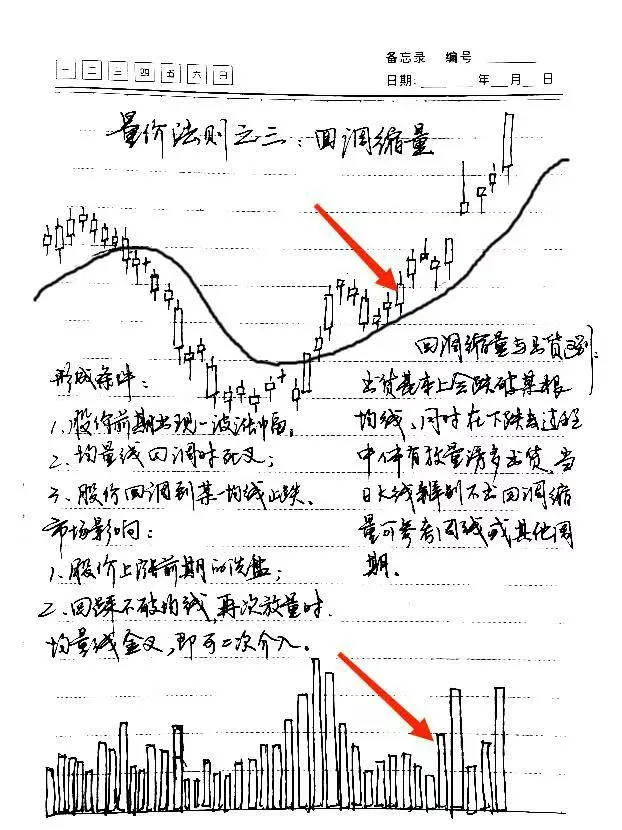 一 二 三 四 五 六 日
备忘录 编号
日期: 年 月 日
量价法则之三：回调缩量
形成条件：
1、股价前期出现一波涨幅；
2、均量线回调时死叉；
3、股价回调到某一均线止跌。
市场影响：
1、股价上涨前期的洗盘；
2、回踩不破均线，再次放量时.
均量线金叉，即可二次介入。
回调缩量与出货区别：
出货基本上会跌破某根
均线、同时在下跌过程
中伴有放量诱多出货，当
日K线辨别不出回调缩
量可参考周线或其他周
期。